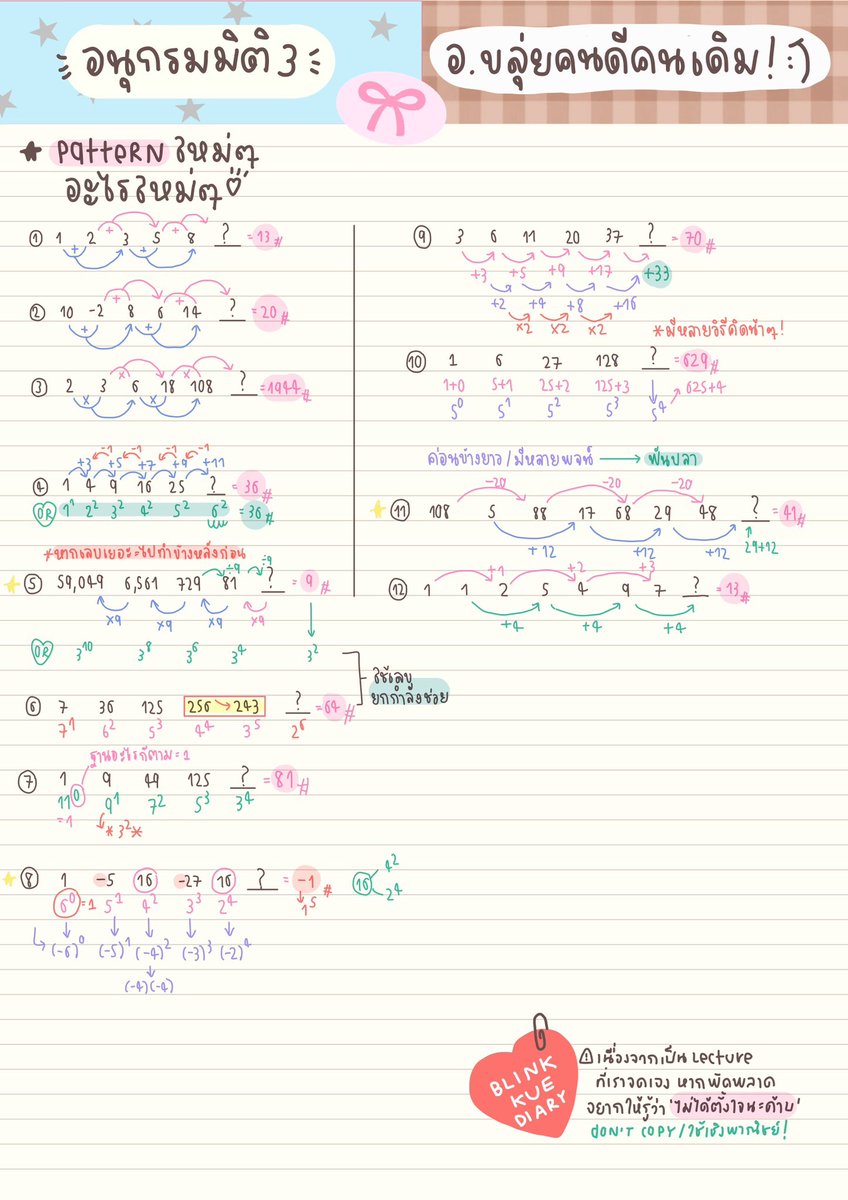 อนุกรมมิติ 3
อ.ขลุ่ยคนดีคนเดิม! :)
★ Pattern ใหม่ๆ
อะไรใหม่ๆ
① 1 2 3 5 8 ? = 13 #
+ + + +
② 10 -2 8 6 14 ? = 20 #
+ + + +
③ 2 3 6 18 108 ? = 1944 #
× × × ×
-1 -1 -1 -1
+3 +5 +7 +9 +11
④ 1 4 9 16 25 ? = 36 #
OR 1² 2² 3² 4² 5² 6² = 36 #
*หากเลขเยอะ=ไปทำข้างหลังก่อน
÷9 ÷9
⑤ 59,049 6,561 729 81 ? = 9 #
×9 ×9 ×9 ×9
OR 3¹⁰ 3⁸ 3⁶ 3⁴ 3²
ใช้เลข
ยกกำลังช่วย
⑥ 7 36 125 256 → 243 ? = 64 #
7¹ 6² 5³ 4⁴ 3⁵ 2⁶
ฐานอะไรก็ตาม = 1
⑦ 1 9 49 125 ? = 81 #
11⁰ 9¹ 7² 5³ 3⁴
= 1 *3²*
⑧ 1 -5 16 -27 16 ? = -1 #
6⁰ = 1 5¹ 4² 3³ 2⁴ 1⁵
(-6)⁰ (-5)¹ (-4)² (-3)³ (-2)⁴
(-4)(-4)
16 4²
2⁴
⑨ 3 6 11 20 37 ? = 70 #
+3 +5 +9 +17 +33
+2 +4 +8 +16
×2 ×2 ×2
*มีหลายวิธีคิดน้าๆ!
⑩ 1 6 27 128 ? = 629 #
1+0 5+1 25+2 125+3 625+4
5⁰ 5¹ 5² 5³ 5⁴
ค่อนข้างยาว/มีหลายพจน์ → ฟันปลา
-20 -20 -20
⑪ 108 5 88 17 68 29 48 ? = 41 #
+12 +12 +12 29+12
+1 +2 +3
⑫ 1 1 2 5 4 9 7 ? = 13 #
+4 +4 +4
BLINK
KUE
DIARY
⚠ เนื่องจากเป็น Lecture
ที่เราจดเอง หากผิดพลาด
อยากให้รู้ว่า 'ไม่ได้ตั้งใจนะค้าบ'
DON'T COPY/ใช้เชิงพาณิชย์!